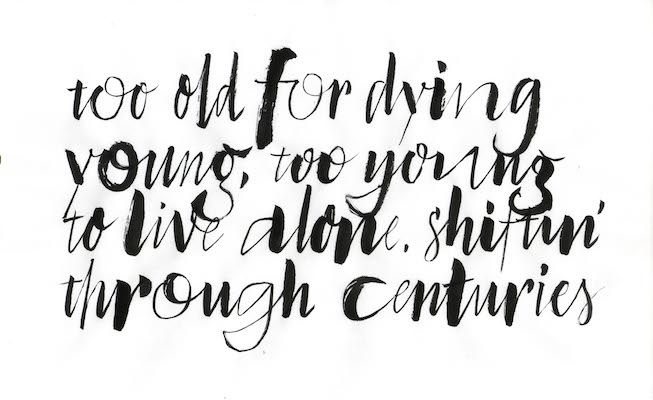 too old for dying
young, too young
to live alone. shiftin'
through centuries